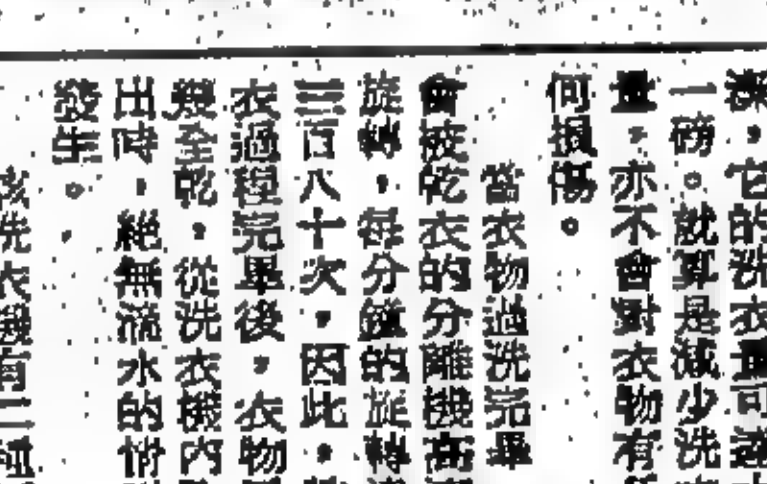 ，它的洗衣量可達
一磅。就算是減少洗
量，亦不會對衣物有
何損傷。
當衣物過洗完畢
會被乾衣的分離機高
旋轉，每分鐘的旋轉
三百八十次，因此，
衣過程完畢後，衣物
幾全乾，從洗衣機內
出時，絕無滴水的情
發生。
該洗衣機有二種